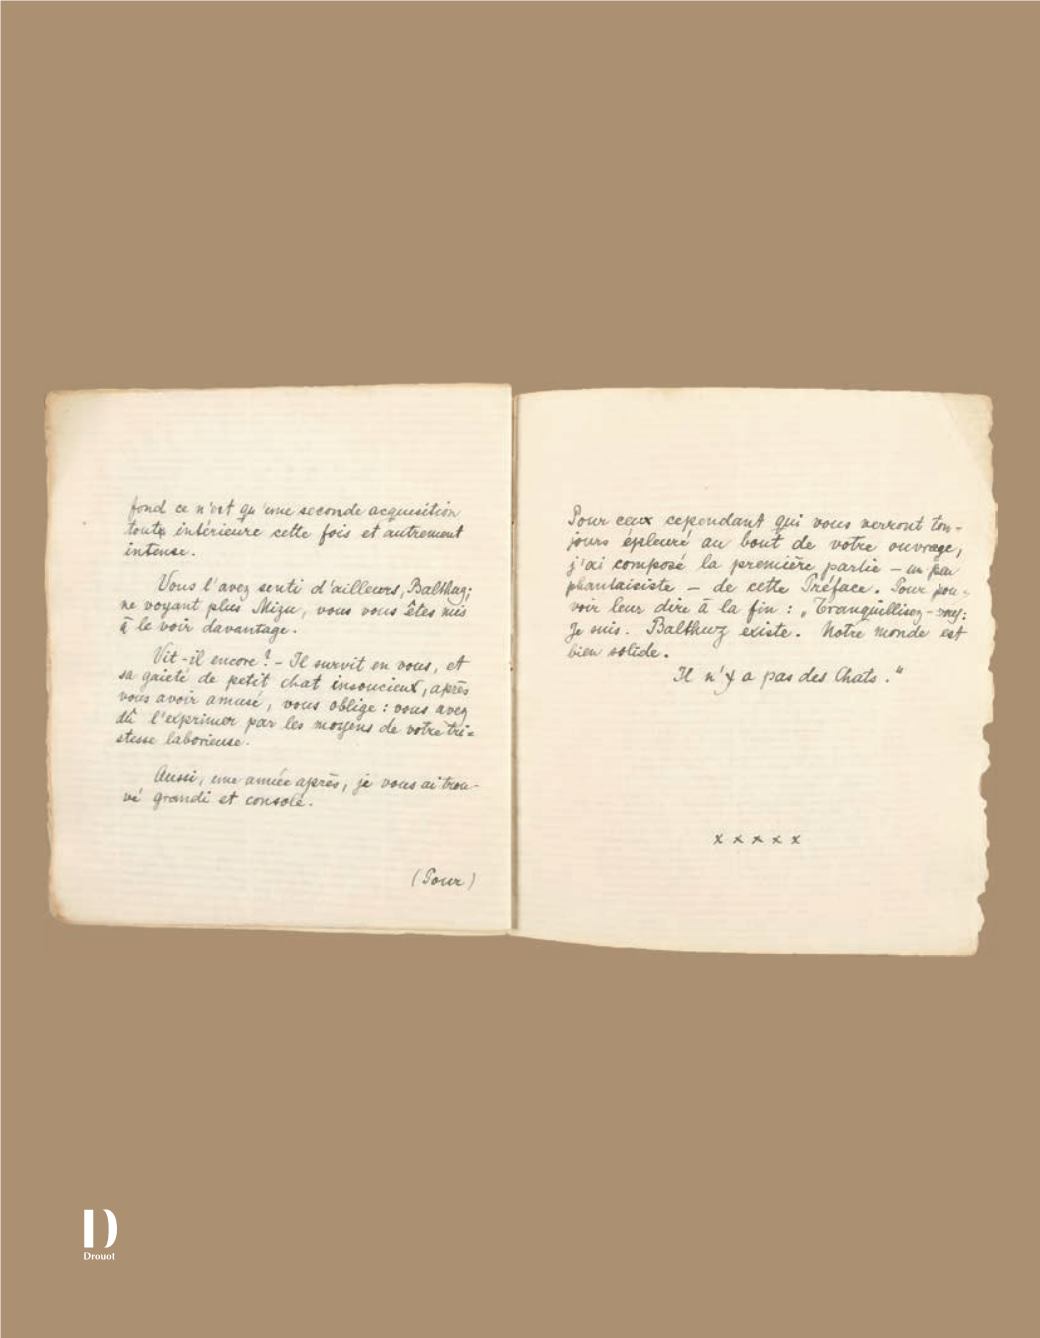 fond ce n'est qu'une seconde acquisition
toute intérieure cette fois et autrement
intense.
Vous l'avez senti d'ailleurs, Balthuz;
ne voyant plus Mizu, vous vous êtes mis
à le voir davantage.
Vit-il encore? – Il survit en vous, et
sa gaieté de petit chat insoucieux, après
vous avoir amusé, vous oblige : vous avez
dû l'exprimer par les moyens de votre tri=
stesse laborieuse.
Aussi, une année après, je vous ai trou-
vé grandi et consolé.
(Pour)
Pour ceux cependant qui vous verront tou-
jours épleuré au bout de votre ouvrage,
j'ai composé la première partie – un peu
phantaisiste – de cette Préface. Pour pou-
voir leur dire à la fin : „Tranquillisez-vous:
Je suis. Balthuz existe. Notre monde est
bien solide.
Il n'y a pas des Chats."
x x x x x
D
Drouot